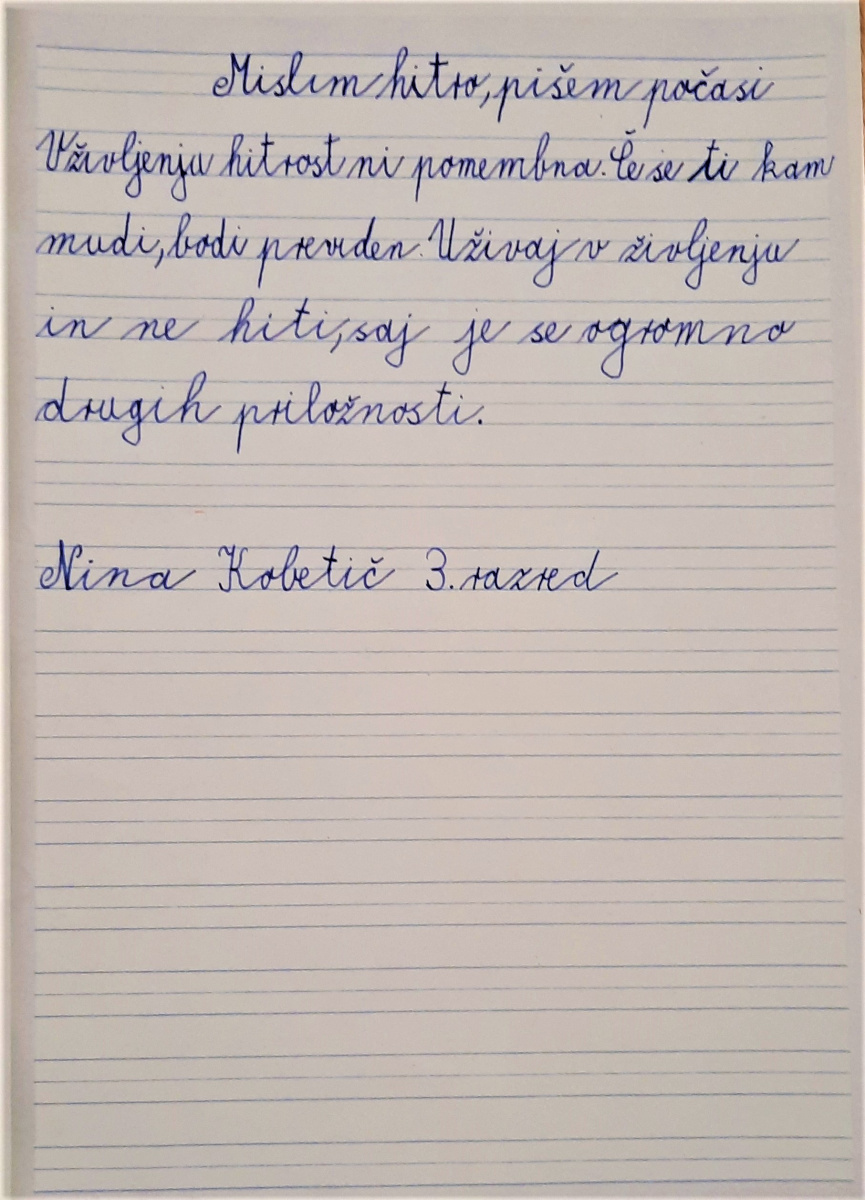 Mislim hitro, pišem počasi
V življenju hitrost ni pomembna. Če se ti kam
mudi, bodi previden. Uživaj v življenju
in ne hiti, saj je se ogromno
drugih priložnosti.
Nina Kobetič 3. razred